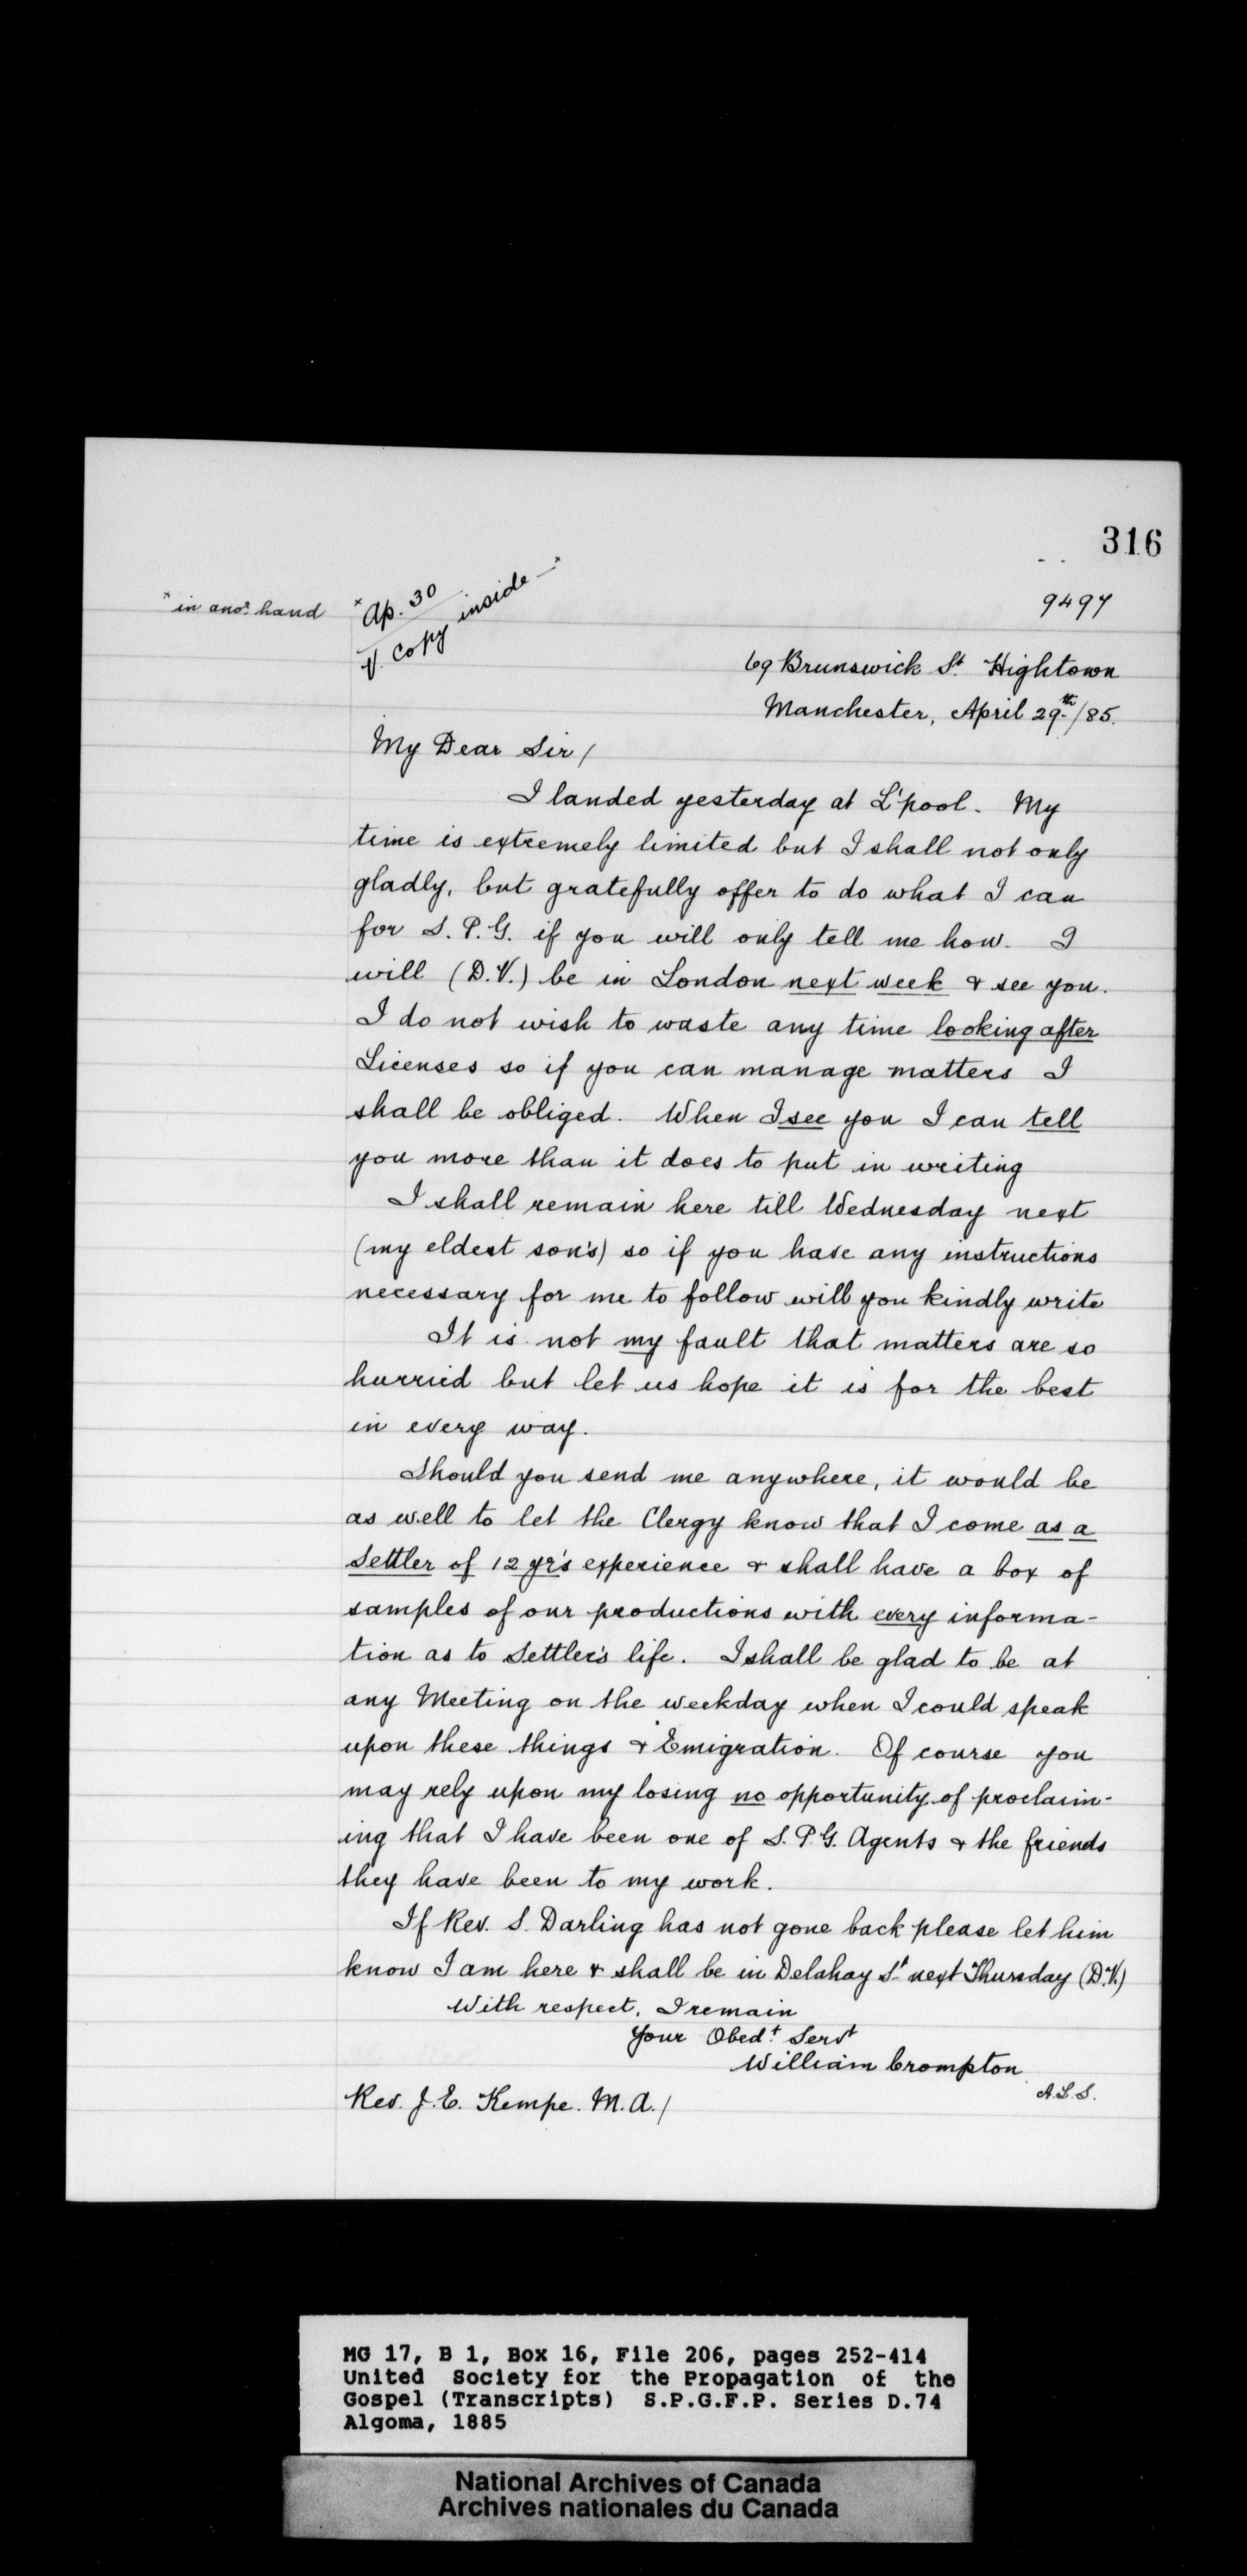 316
* in anor. hand
* Ap. 30
V. copy inside — *
9497
69 Brunswick St. Hightown
Manchester, April 29th/85.
My Dear Sir/
I landed yesterday at L'pool. My
time is extremely limited but I shall not only
gladly, but gratefully offer to do what I can
for S. P. G. if you will only tell me how. I
will (D.V.) be in London next week & see you.
I do not wish to waste any time looking after
Licenses so if you can manage matters I
shall be obliged. When I see you I can tell
you more than it does to put in writing
I shall remain here till Wednesday next
(my eldest son's) so if you have any instructions
necessary for me to follow will you kindly write
It is not my fault that matters are so
hurried but let us hope it is for the best
in every way.
Should you send me anywhere, it would be
as well to let the Clergy know that I come as a
Settler of 12 yr's experience & shall have a box of
samples of our productions with every informa-
tion as to Settler's life. I shall be glad to be at
any Meeting on the weekday when I could speak
upon these things & Emigration. Of course you
may rely upon my losing no opportunity of proclaim-
ing that I have been one of S. P. G. Agents & the friends
they have been to my work.
If Rev. S. Darling has not gone back please let him
know I am here & shall be in Delahay St. next Thursday (D.V.)
With respect, I remain
Your Obedt. Servt
William Crompton
A.L.S.
Rev. J. E. Kempe. M. A./
MG 17, B 1, Box 16, File 206, pages 252-414
United Society for the Propagation of the
Gospel (Transcripts) S.P.G.F.P. Series D.74
Algoma, 1885
National Archives of Canada
Archives nationales du Canada